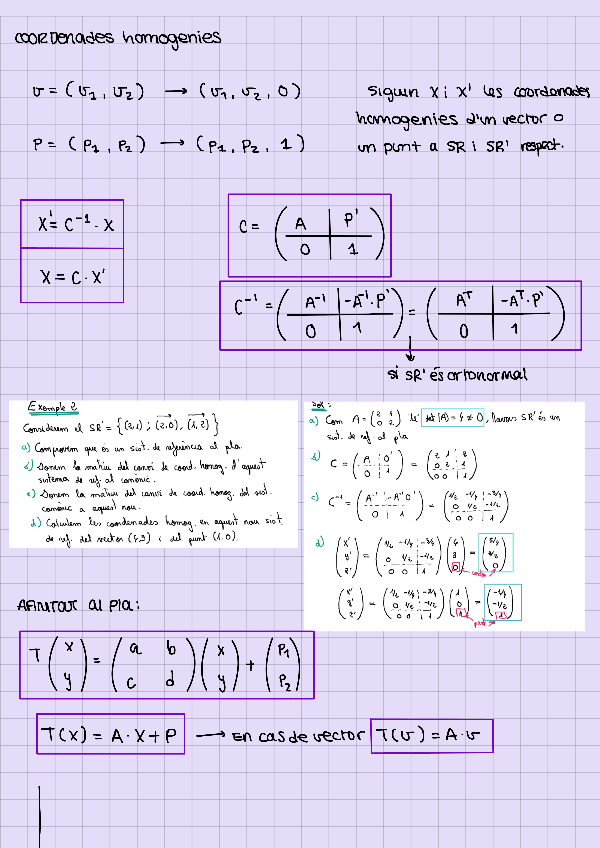 COORDENADES homogenies
v = (v₁, v₂) → (v₁, v₂, 0)
P = (P₁, P₂) → (P₁, P₂, 1)
Siguin X i X' les coordenades
homogenies d'un vector o
un punt a SR i SR' respect.
X' = C⁻¹ · X
X = C · X'
C = ( A | P' )
( 0 | 1 )
C⁻¹ = ( A⁻¹ | -A⁻¹·P' ) = ( Aᵀ | -Aᵀ·P' )
( 0 | 1 ) ( 0 | 1 )
si SR' és ortonormal
Exemple 2
Considerem el SR' = {(2,1) ; (2,0), (1,2)}
a) Comprovem que és un sist. de referència al pla.
b) Donem la matriu del canvi de coord. homog. d'aquest
sistema de ref. al canònic.
c) Donem la matriu del canvi de coord. homog. del sist.
canònic a aquest nou.
d) Calculem les coordenades homog. en aquest nou sist.
de ref. del vector (4,9) i del punt (1,0).
Sol:
a) Com A = ( 2 1 ) té det(A) = 4 ≠ 0, llavors SR' és un
( 0 2 )
sist. de ref. al pla
b) C = ( A | O' ) = ( 2 1 | 2 )
( 0 | 1 ) ( 0 2 | 1 )
( 0 0 | 1 )
c) C⁻¹ = ( A⁻¹ | -A⁻¹O' ) = ( 1/2 -1/4 | -3/4 )
( 0 | 1 ) ( 0 1/2 | -1/2 )
( 0 0 | 1 )
d) ( x' ) = ( 1/2 -1/4 | -3/4 )
( y' ) ( 0 1/2 | -1/2 )
( z' ) ( 0 0 | 1 )
vector
( x' ) = ( 1/2 -1/4 | -3/4 ) ( 1 ) = ( -1/4 )
( y' ) ( 0 1/2 | -1/2 ) ( 0 ) ( -1/2 )
( z' ) ( 0 0 | 1 ) ( 1 ) ( 1 )
punt
AFINITAT al pla:
T ( x ) = ( a b ) ( x ) + ( P₁ )
( y ) ( c d ) ( y ) ( P₂ )
T(X) = A · X + P → En cas de vector T(v) = A · v